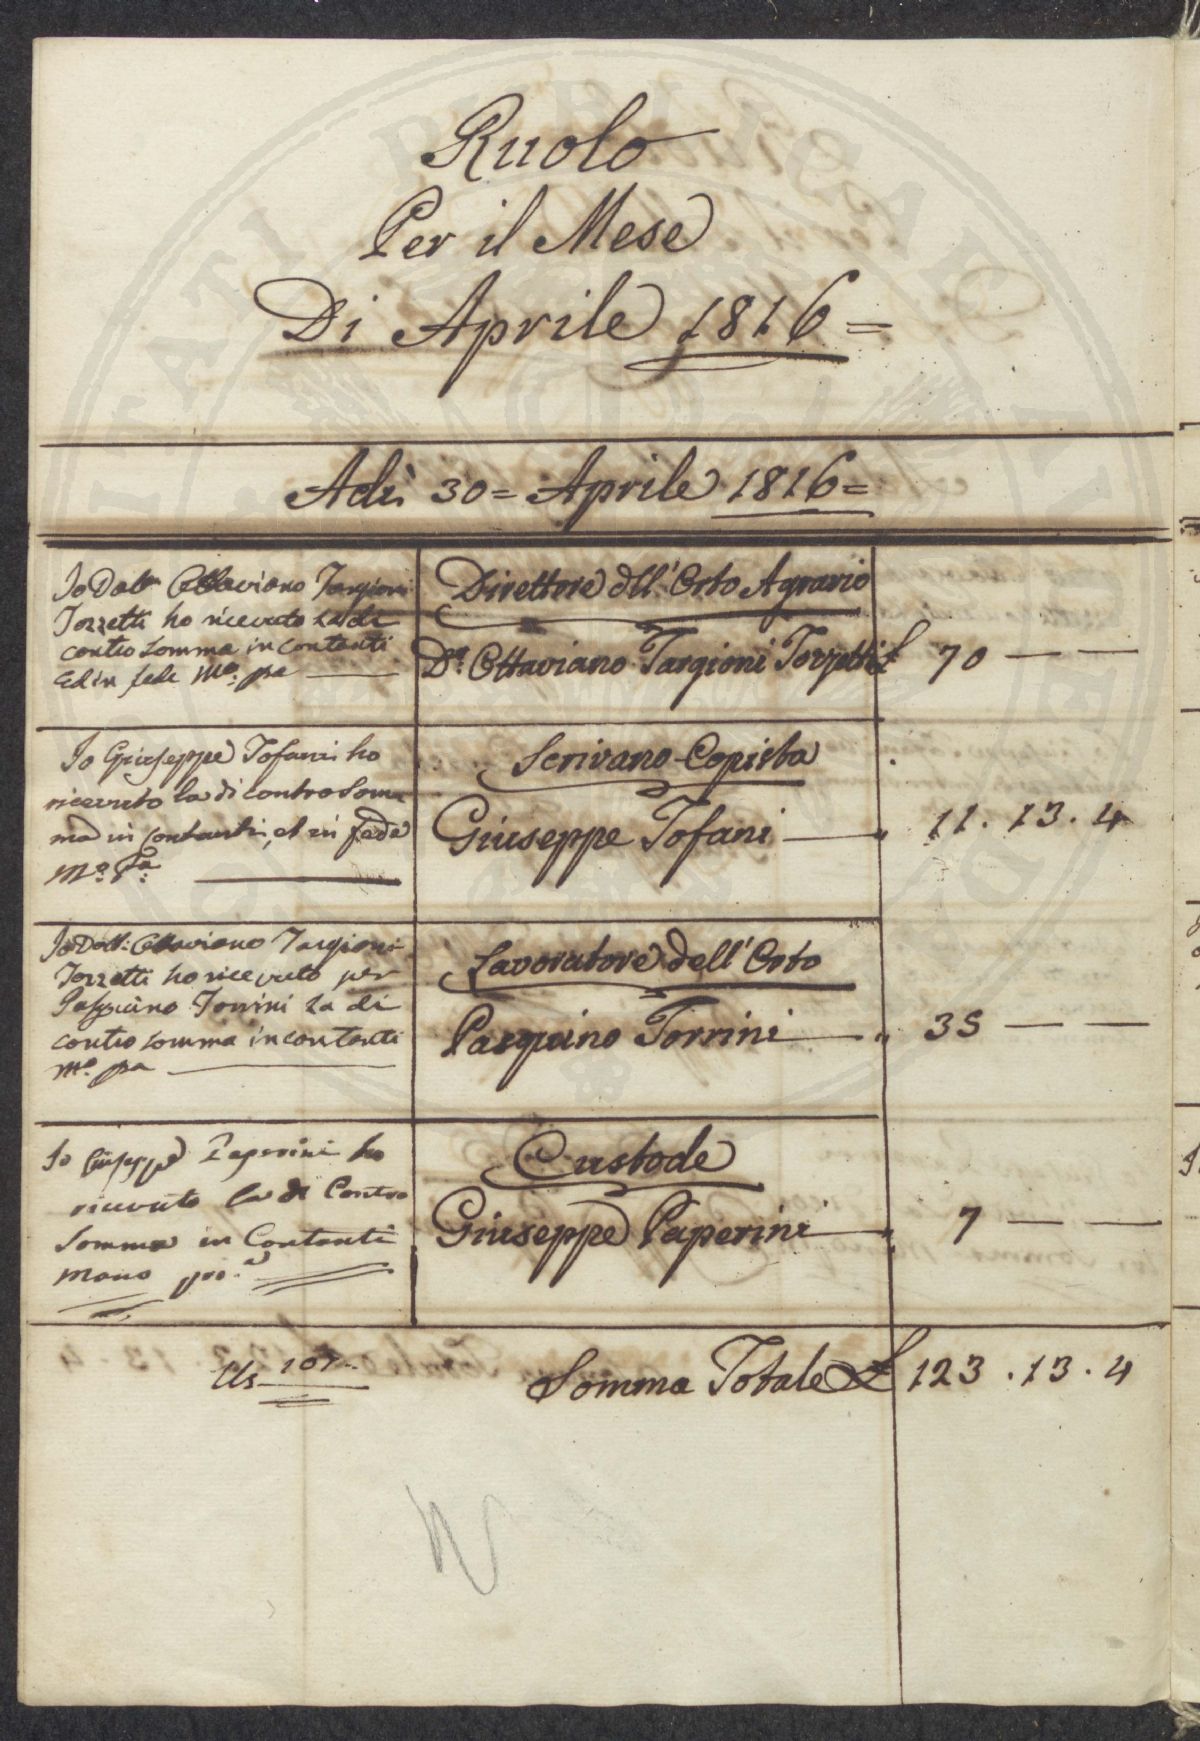 Ruolo
Per il Mese
Di Aprile 1816 =
Adì 30 = Aprile 1816 =
Io Dott. Ottaviano Targioni
Tozzetti ho ricevuto la di
contro somma in contanti
ed in fede Mo. pa
Direttore dll' Orto Agrario
Dr. Ottaviano Targioni Tozzetti £ 70 — —
Io Giuseppe Tofani ho
ricevuto la di contro som
ma in contanti, et in fede
Mo. Pa:
Scrivano Copista
Giuseppe Tofani — " 11. 13. 4
Io Dott: Ottaviano Targioni
Tozzetti ho ricevuto per
Pasquino Torrini la di
contro somma in contanti
Mo. pa
Lavoratore dell' Orto
Pasquino Torrini — " 35 — —
Io Giuseppe Paperini ho
ricevuto la di Contro
Somma in Contanti
Mano pro.a
Custode
Giuseppe Paperini — " 7 — —
Somma Totale £ 123. 13. 4